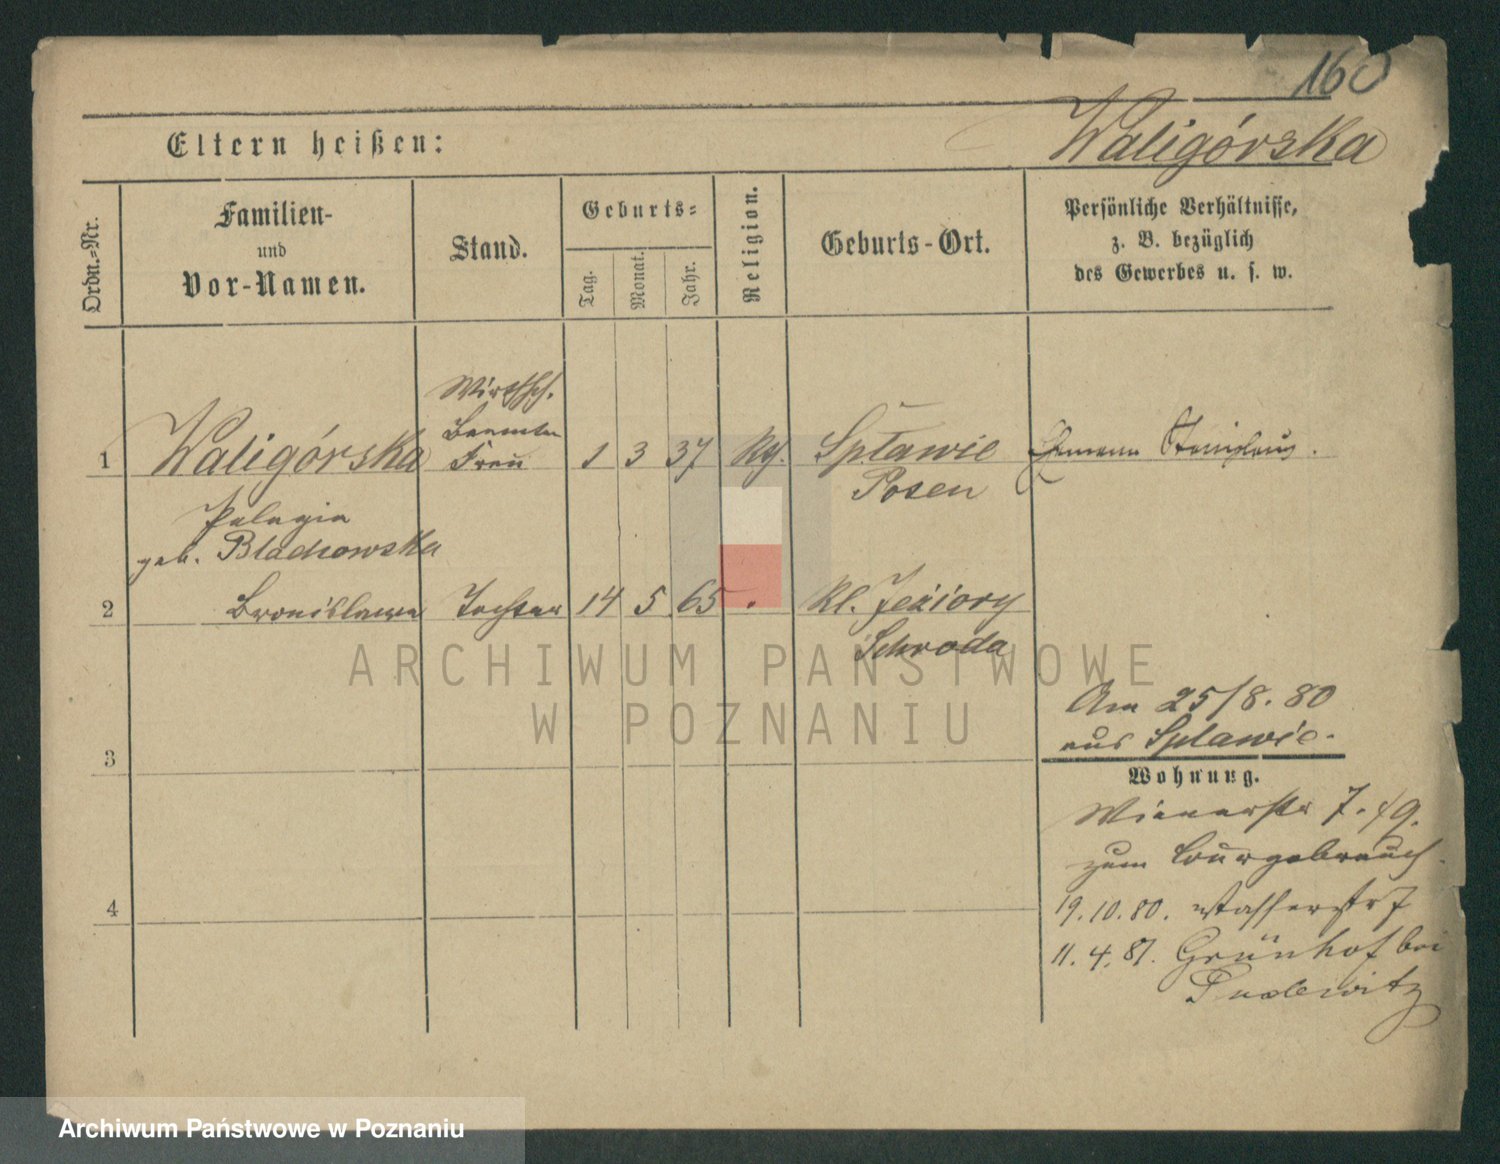 160
Eltern heißen:
Waligórska
Ordn.-Nr.
Familien-
und
Vor-Namen.
Stand.
Geburts-
Tag.
Monat.
Jahr.
Religion.
Geburts-Ort.
Persönliche Verhältnisse,
z. B. bezüglich
des Gewerbes u. s. w.
Wirthsch.
Beamten
1 Waligórska Frau 1 3 37 Spławie Ehemann Stanislaus.
Posen
Pelagia
geb. Blachowska
2 Bronislawa Tochter 14 5 65 Kl. Jeziory
Schroda
ARCHIWUM PAŃSTWOWE
W POZNANIU
Am 25/8. 80
aus Splawie.
3
Wohnung.
Wienerstr 7.
zum
4
19. 10. 80.
11. 4. 81. Grünhof bei
Pudewitz
Archiwum Państwowe w Poznaniu